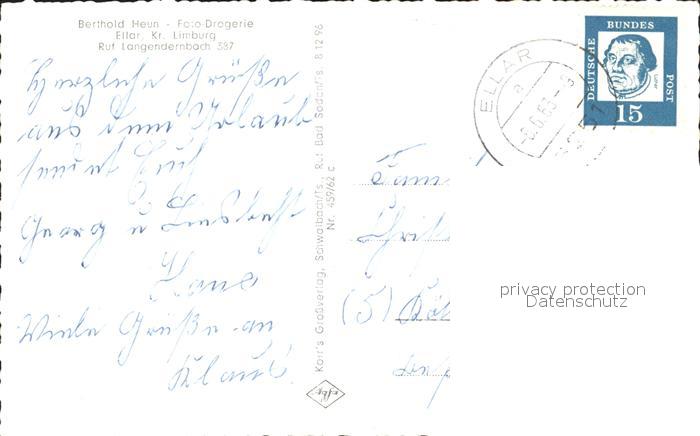 Berthold Heun - Foto-Drogerie
Ellar, Kr. Limburg
Ruf Langendernbach 337
Herzliche Grüße
aus dem Urlaub
sendet Euch
Georg u Liesbeth
Hans
Viele Grüße an
Klaus
Korr's Großverlag, Saiwalbach/Ts., Ruf Bad Soden/Ts. 8 12 96
Nr. 459/62 c
ELLAR
a
DEUTSCHE
BUNDES
POST
Luther
15
Fam.
(5) Köl
privacy protection
Datenschutz